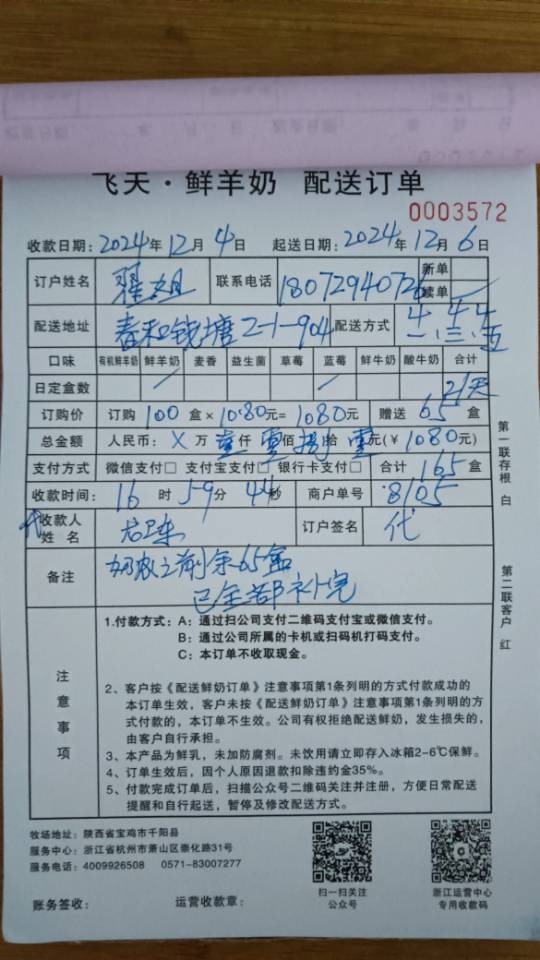 飞天·鲜羊奶 配送订单
0003572
收款日期:2024年12月4日 起送日期:2024年12月6日
订户姓名 翟姐 联系电话 18072940726 新单
续单
配送地址 春和钱塘2-1-904 配送方式 4 4 4
一·三·五
口味 有机鲜羊奶 鲜羊奶 麦香 益生菌 草莓 蓝莓 鲜牛奶 酸牛奶 合计
日定盒数 2/天
订购价 订购100盒×1080元=1080元 赠送65盒
总金额 人民币:X万壹仟零佰捌拾零元(¥1080元)
支付方式 微信支付□ 支付宝支付□ 银行卡支付□ 合计165盒
收款时间:16时59分44秒 商户单号 8105
代收款人
姓名 订户签名 代
备注 奶农之前剩余65盒
已全部补完
注意事项
1.付款方式:A:通过扫公司支付二维码支付宝或微信支付。
B:通过公司所属的卡机或扫码机打码支付。
C:本订单不收取现金。
2、客户按《配送鲜奶订单》注意事项第1条列明的方式付款成功的
本订单生效,客户未按《配送鲜奶订单》注意事项第1条列明的方
式付款的,本订单不生效。公司有权拒绝配送鲜奶,发生损失的,
由客户自行承担。
3、本产品为鲜乳,未加防腐剂。未饮用请立即存入冰箱2-6℃保鲜。
4、订单生效后,因个人原因退款扣除违约金35%。
5、付款完成订单后,扫描公众号二维码关注并注册,方便日常配送
提醒和自行起送,暂停及修改配送方式。
第一联存根 白
第二联客户 红
牧场地址:陕西省宝鸡市千阳县
服务中心:浙江省杭州市萧山区崇化路31号
服务电话:4009926508 0571-83007277
扫一扫关注
公众号
浙江运营中心
专用收款码
账务签收: 运营收款章: